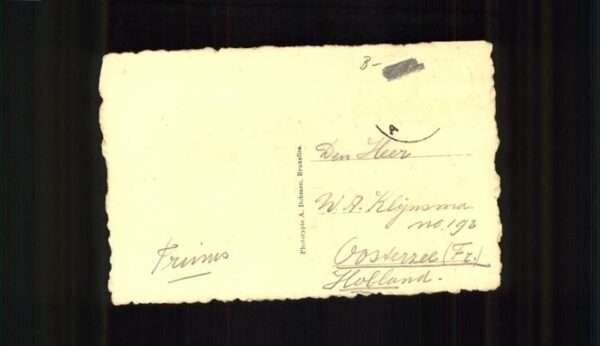 3-
A
Den Heer
W. A. Klijnsma
no. 193
Oosterzee (Fr.)
Holland.
Phototypie A. Dohmen, Bruxelles.